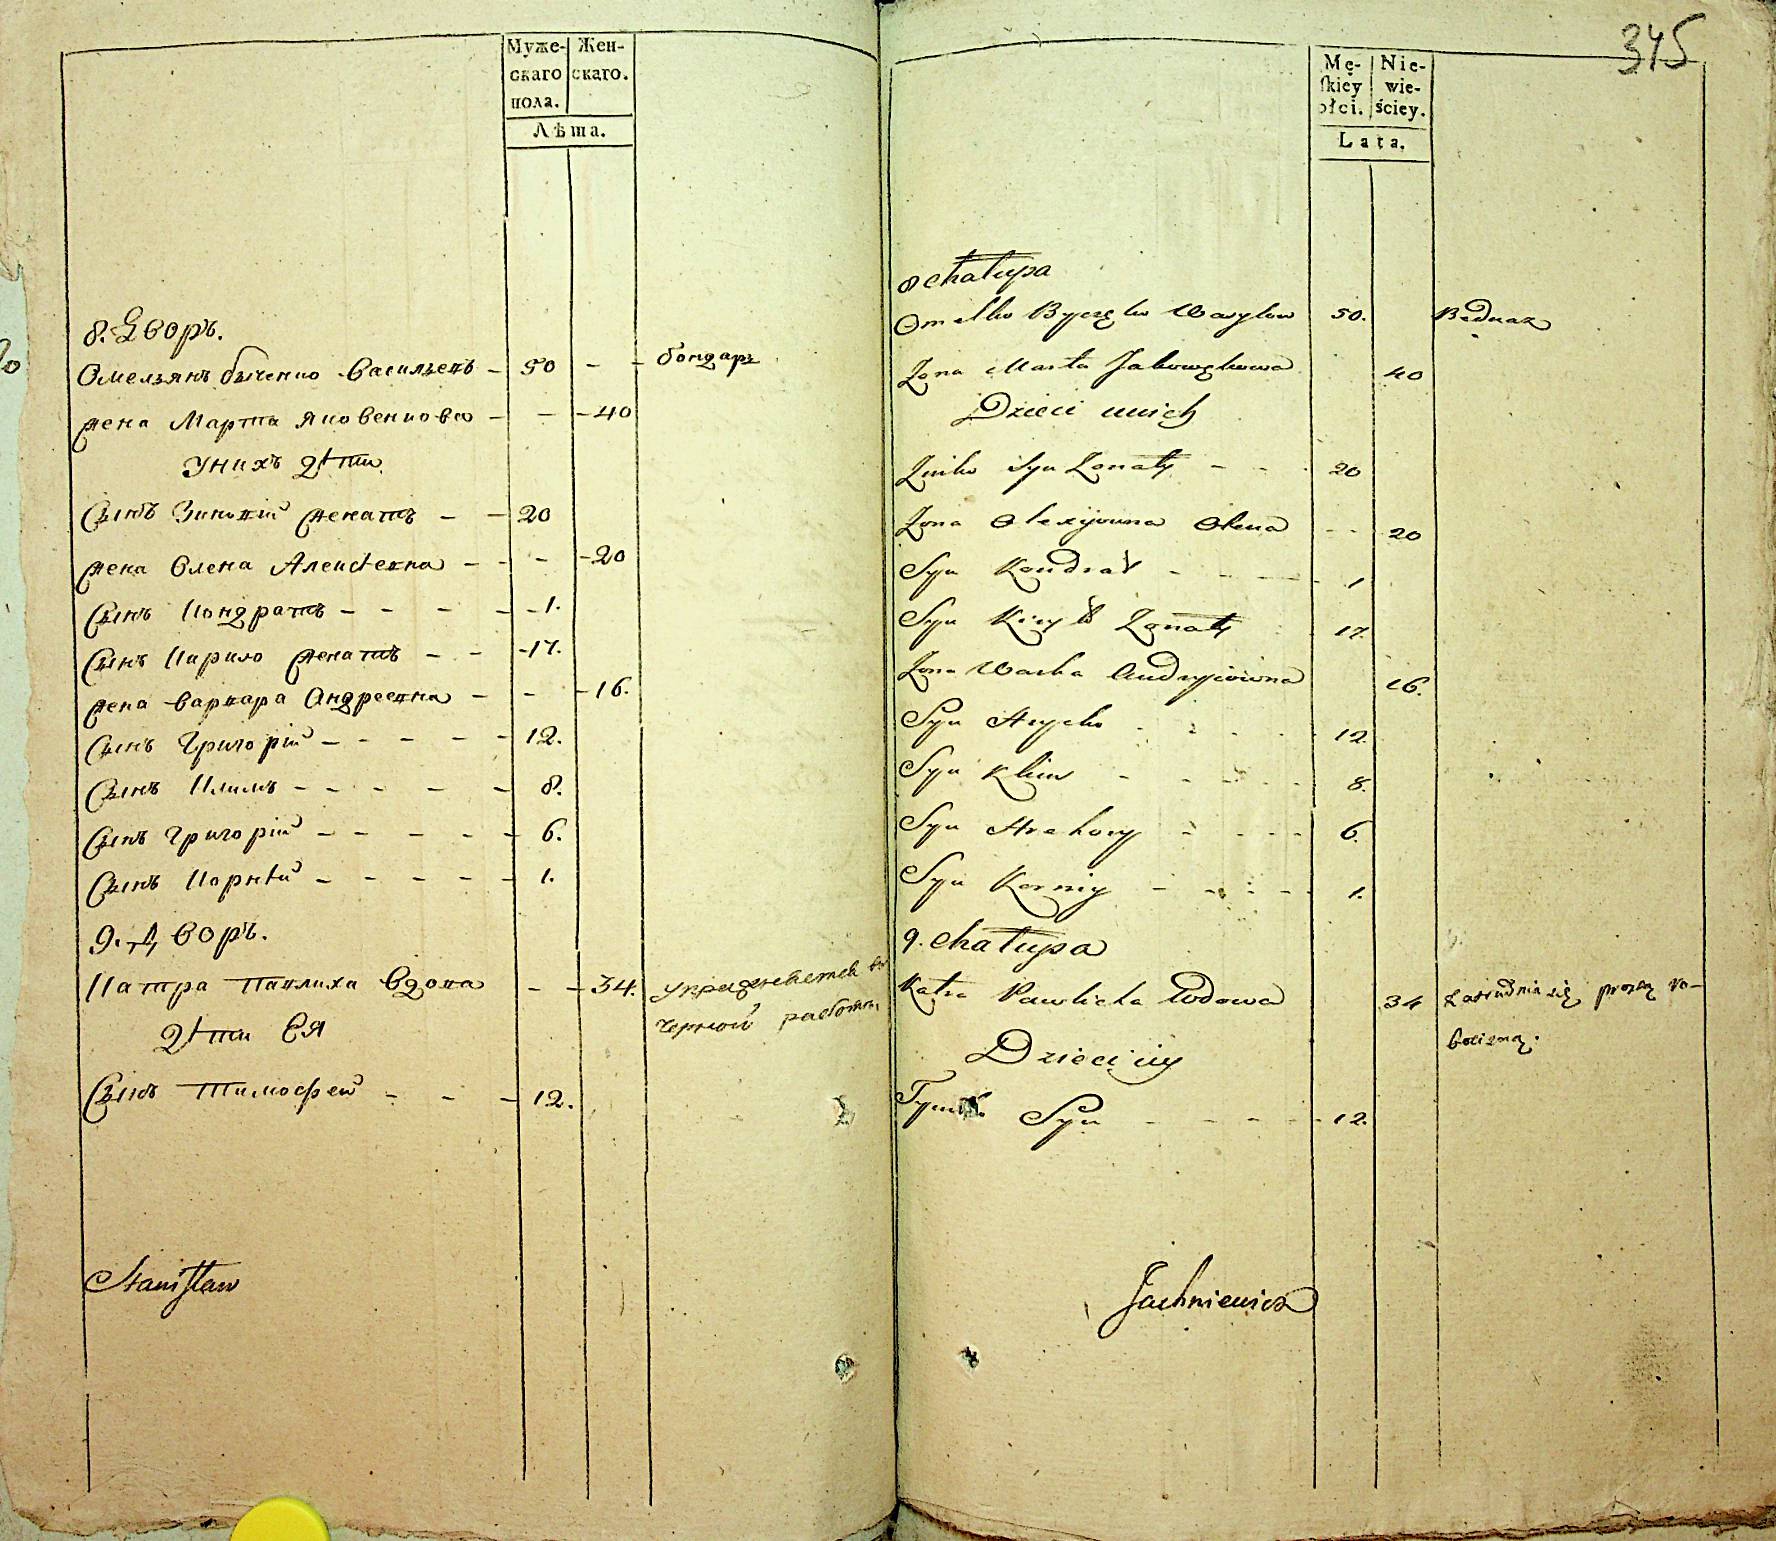 Муже-
скаго
пола.
Жен-
скаго.
Лѣта.
8. Дворъ.
Омельянъ Быченко Васильевъ – 50 – – бондарь
жена Марта Яковенкова – – – 40
У нихъ Дѣти
Сынъ Зиновій женатъ – – 20
жена Олена Алексѣевна – – – 20
Сынъ Кондратъ – – – – – 1.
Сынъ Кирило женатъ – – – 17.
жена Варвара Андреевна – – – 16.
Сынъ Григорій – – – – – 12.
Сынъ Климъ – – – – – 8.
Сынъ Григорій – – – – – 6.
Сынъ Корнѣй – – – – – 1.
9. Дворъ.
Катра Павлиха Вдова – – 34. упражняется въ
черной работѣ,
Дѣти Ея
Сынъ Тимофей – – – 12.
Stanisław
345
Mę-
skiey
płci.
Nie-
wie-
ściey.
Lata.
8 chałupa
Omelko Byczęko Wasylow 50. Bednaz
Zona Marta Jakowękowa 40
Dzieci u nich
Zinko Syn Zonaty – – 20
Zona Olexijowna Olena – – 20
Syn Kondrat – – – – 1
Syn Kiryło Zonaty 17.
Zona Warka Andryiowna 16.
Syn Hrycko 12
Syn Klim – – – – 8.
Syn Hrehory – – – – 6.
Syn Korniy – – – – 1.
9. chałupa
Katra Pawlicha Wdowa 34 Zatrudnia się prostą ro-
bocizną.
Dzieci iey
Tymko Syn – – – – 12.
Jachniewicz